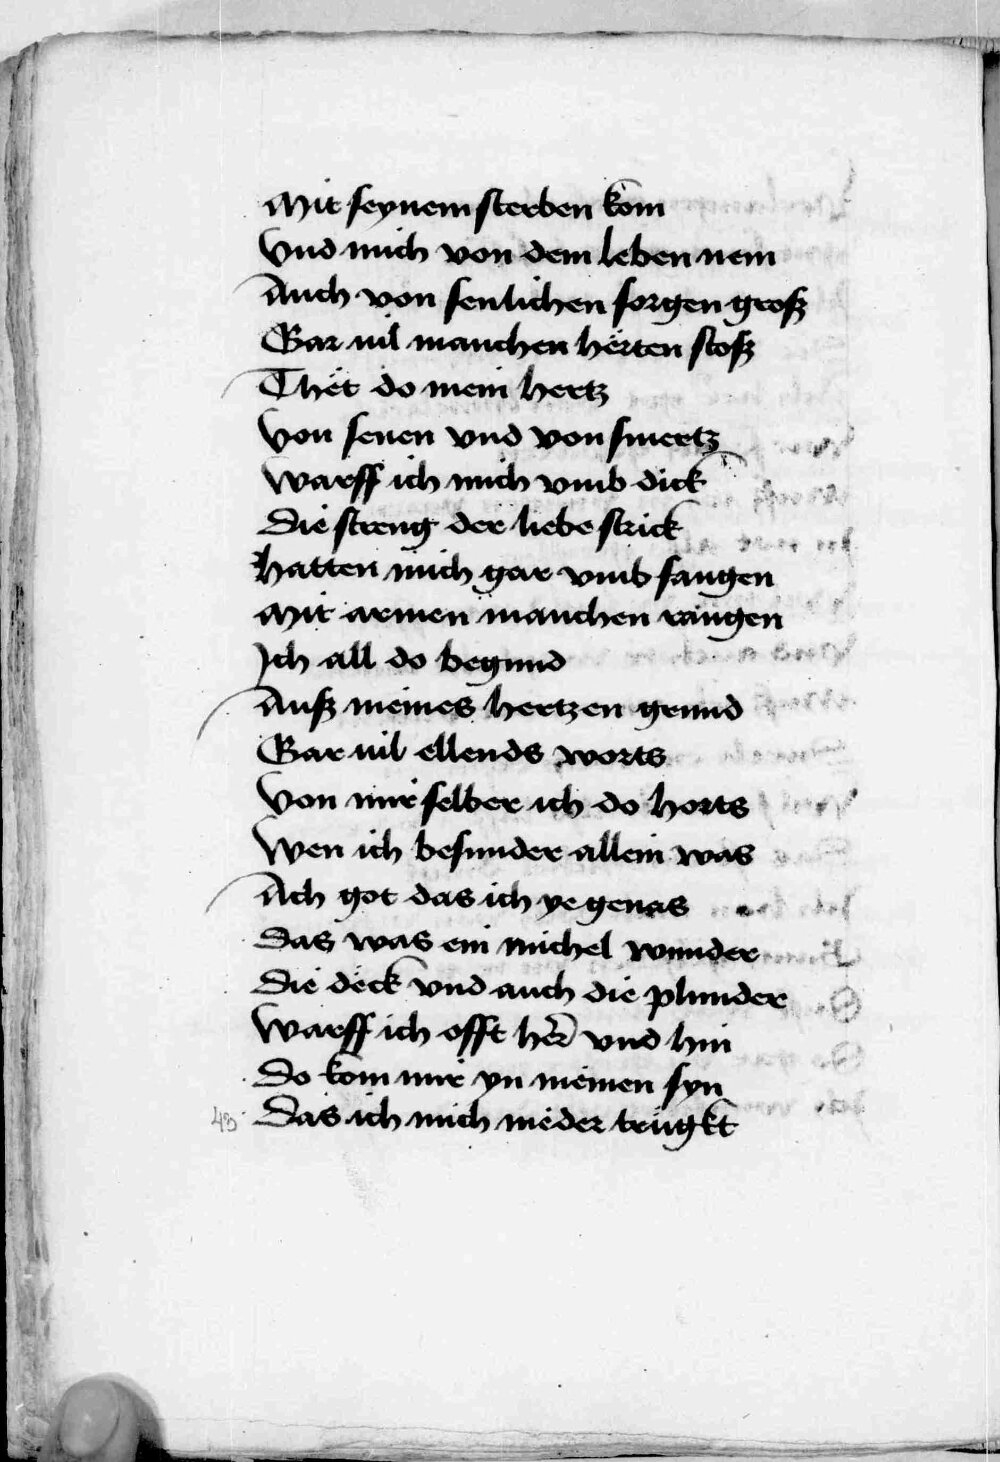 Mit seynem sterben kom
Vnd mich von dem leben nem
Auch von senlichen sorgen groß
Gar uil manchen hërten stoß
Thët do mein hertz
Von senen vnd von smertz
Warff ich mich vmb dick
Die streng der liebe strick
Hatten mich gar vmb fangen
Mit armen manchen rangen
Ich all do begund
Auß meines hertzen grund
Gar uil ellends worts
Von mir selber ich do horts
Wen ich besunder allein was
Ach got das ich ye genas
Das was ein michel wunder
Die dëck vnd auch die plunder
Warff ich offt hër vnd hin
Do kom mir yn meinen syn
43 Das ich mich nieder trügkt